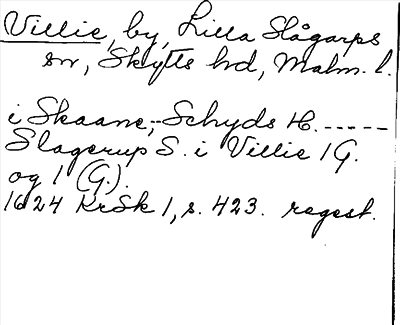 Villie, by, Lilla Slågarps
sn, Skytts hd, Malm. l.
i Skaane,- Schyds H. -----
Slagerup S. i Villie 1 G.
og 1 (G.).
1624 KrSk 1, s. 423. regest.